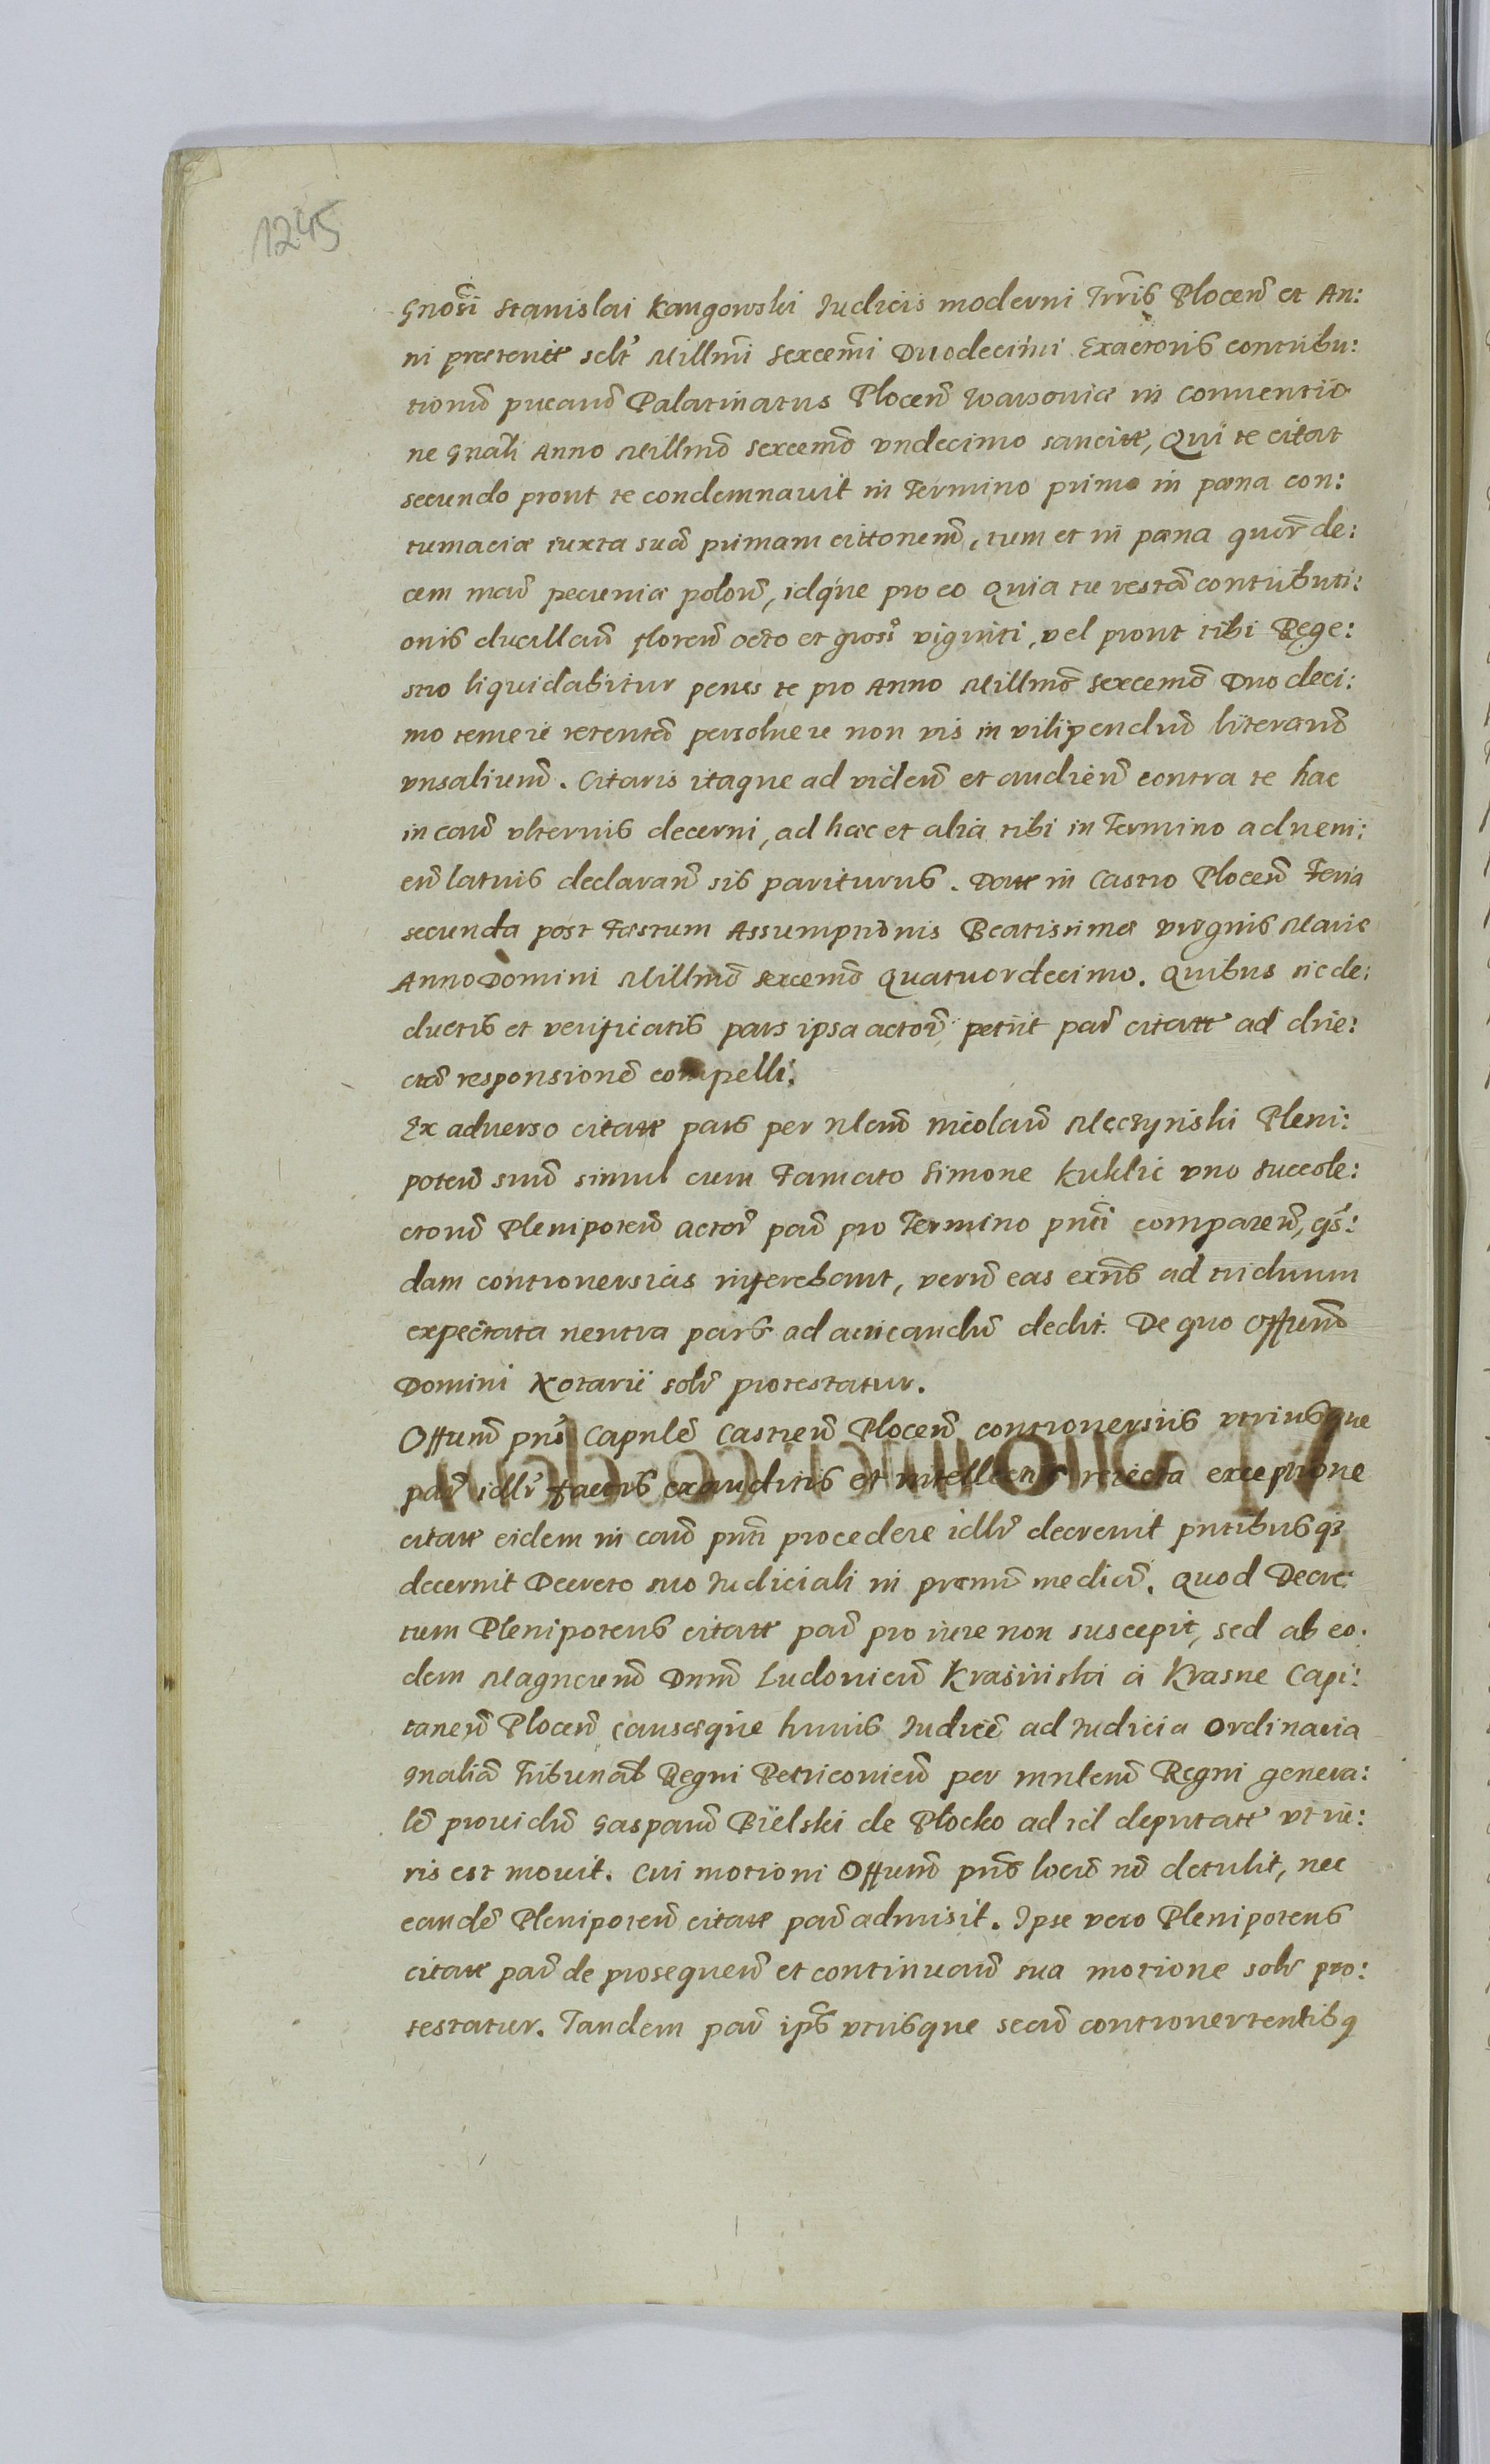 1245
Gnosi Stanislai Kangowski Iudicis moderni Trris Plocen̄ et An:
ni preterite sclt Millmi Sexcemi Duodecimi Exactoris contribu:
tionū pucanū Palatinatus Plocen̄ Warsoviæ in Conventio
ne Gnali Anno Millmō Sexcemō vndecimo sancitæ, Qui te citat
secundo prout te condemnauit in Termino primo in pœna con:
tumaciæ iuxta suā primam cittonem̄, tum et in pœna quar de:
cem mar̄ pecuniæ polon̄, idq́ue pro eo Quia tu restā contributi:
onis ducillan̄ floren̄ octo et gross viginti, vel prout tibi Rege:
stro liquidabitur penes te pro Anno Millmō Sexcemō Duodeci:
mo temerè retentā persoluere non vis in vilipendiū literarū
vnsaliūm. Citaris itaque ad viden̄ et audien̄ contra te hac
in cau̅ vlterius decerni, ad hæc et alia tibi in Termino adueni:
en̄ latius declaran̄ sis pariturus. Datt in Castro Plocen̄ Feria
secunda post Festum Assumptionis Beatissimæ virginis Mariæ
Anno Domini Millmō Sexcemō Quatuordecimo. Quibus sic de:
ductis et verificatis pars ipsa actor̄ petiit par̄ citatt ad dire:
ctā responsionē compelli.
Ex aduerso citatt pars per Nlem̄ Nicolaū Meczynski Pleni:
poten̄ suū simul cum Famato Simone Kuklic vno succole:
ctorū Plenipoten̄ actor̄ par̄ pro Termino pnti comparen̄, qs:
dam controuersias inferebant, verū eas exnts ad triduum
expectata neutra pars ad auicandū dedit. De quo Offium̄
Domini Notarii solr protestatur.
Offium̄ pns Capnlē Castren̄ Plocen̄ controuersiis vtriusque
par̄ idlr factis exauditis et intellectis reiecta exceptione
citatt eidem in cau̅ pnti procedere idlr decreuit pntibusq3
decernit Decreto suo Iudiciali in præmis̄ mediā. Quod Decre:
tum Plenipotens citatt par̄ pro iure non suscepit, sed ab eo.
dem Magncum̄ Dnm̄ Ludouicū Krasinski a Krasne Capi:
taneū Plocen̄ causæque huius Iudicē ad Iudicia Ordinaria
Gnaliā Tribunals Regni Petricouien̄ per mnlem̄ Regni genera:
lē prouidū Gasparū Bielski de Plocko ad id deputatt vt iu:
ris est mouit. Cui motioni Offium̄ pns locū nō detulit, nec
eandē Plenipoten̄ citatt par̄ admisit. Ipse vero Plenipotens
citatt par̄ de prosequen̄ et continuan̄ sua motione solr pro:
testatur. Tandem par̄ ips vtriusque secū controuertentibq